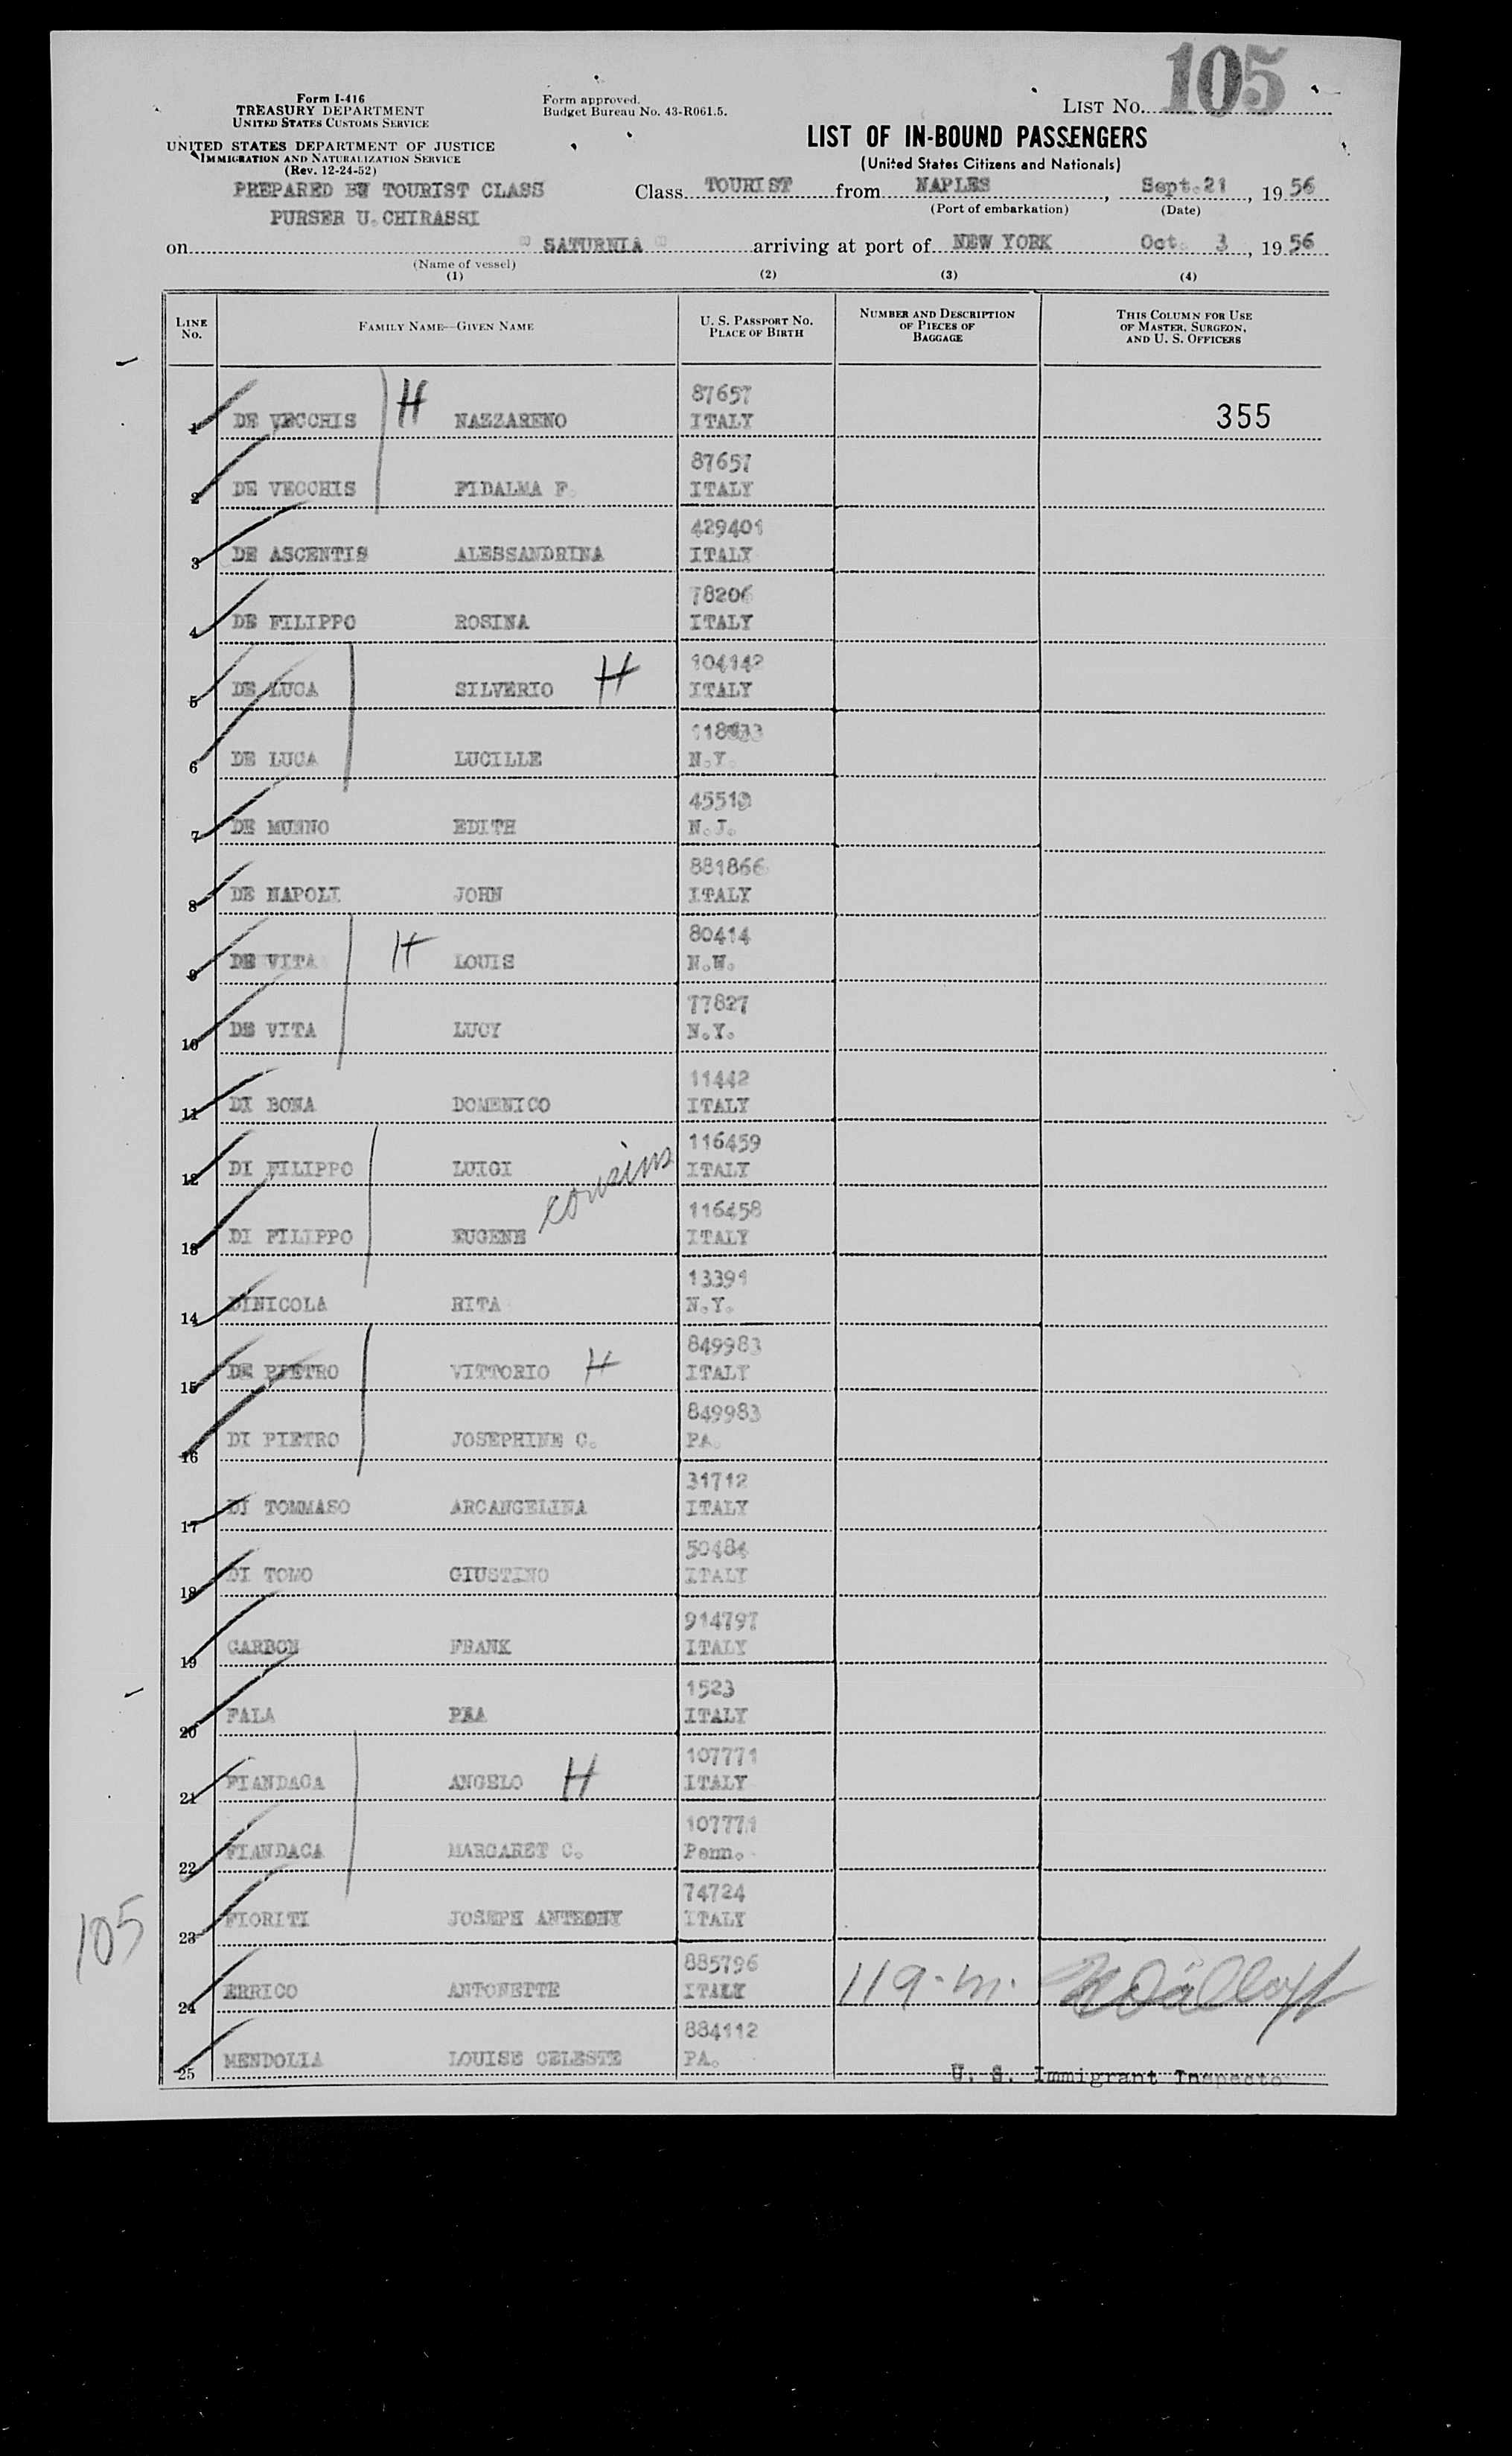 105
Form I-416
TREASURY DEPARTMENT
UNITED STATES CUSTOMS SERVICE
UNITED STATES DEPARTMENT OF JUSTICE
IMMIGRATION AND NATURALIZATION SERVICE
(Rev. 12-24-52)
PREPARED BY TOURIST CLASS
PURSER U. CHIRASSI
Form approved.
Budget Bureau No. 43-R061.5.
LIST No.
LIST OF IN-BOUND PASSENGERS
(United States Citizens and Nationals)
Class TOURIST from NAPLES, Sept. 21, 1956
(Port of embarkation) (Date)
on "SATURNIA" arriving at port of NEW YORK Oct. 3, 1956
(Name of vessel)
(1) (2) (3) (4)
LINE No. FAMILY NAME—GIVEN NAME U. S. PASSPORT No. PLACE OF BIRTH NUMBER AND DESCRIPTION OF PIECES OF BAGGAGE THIS COLUMN FOR USE OF MASTER, SURGEON, AND U. S. OFFICERS
87657
1 DE VECCHIS H NAZZARENO ITALY 355
87657
2 DE VECCHIS FIDALMA F. ITALY
429401
3 DE ASCENTIS ALESSANDRINA ITALY
78206
4 DE FILIPPO ROSINA ITALY
104142
5 DE LUCA SILVERIO H ITALY
6 DE LUCA LUCILLE N.Y.
7 DE MUNNO EDITH N.J.
881866
8 DE NAPOLI JOHN ITALY
80414
9 DE VITA H LOUIS
77827
10 DE VITA LUCY N.Y.
11442
11 DI BONA DOMENICO ITALY
116459
12 DI FILIPPO LUIGI cousins ITALY
116458
13 DI FILIPPO EUGENE ITALY
13391
14 DINICOLA RITA N.Y.
849983
15 DE PIETRO VITTORIO H ITALY
849983
16 DI PIETRO JOSEPHINE C. PA.
31712
17 DI TOMMASO ARCANGELINA ITALY
50484
18 DI TOMO GIUSTINO ITALY
914797
19 CARBON FRANK ITALY
1523
20 FALA ITALY
107771
21 FIANDACA ANGELO H ITALY
107771
22 FIANDACA MARGARET C. Penn.
74724
23 FIORITI JOSEPH ANTHONY ITALY
105
885796
24 ERRICO ANTONETTE ITALY 119-m.
884112
25 MENDOLIA LOUISE CELESTE PA.
U. S. Immigrant Inspecto